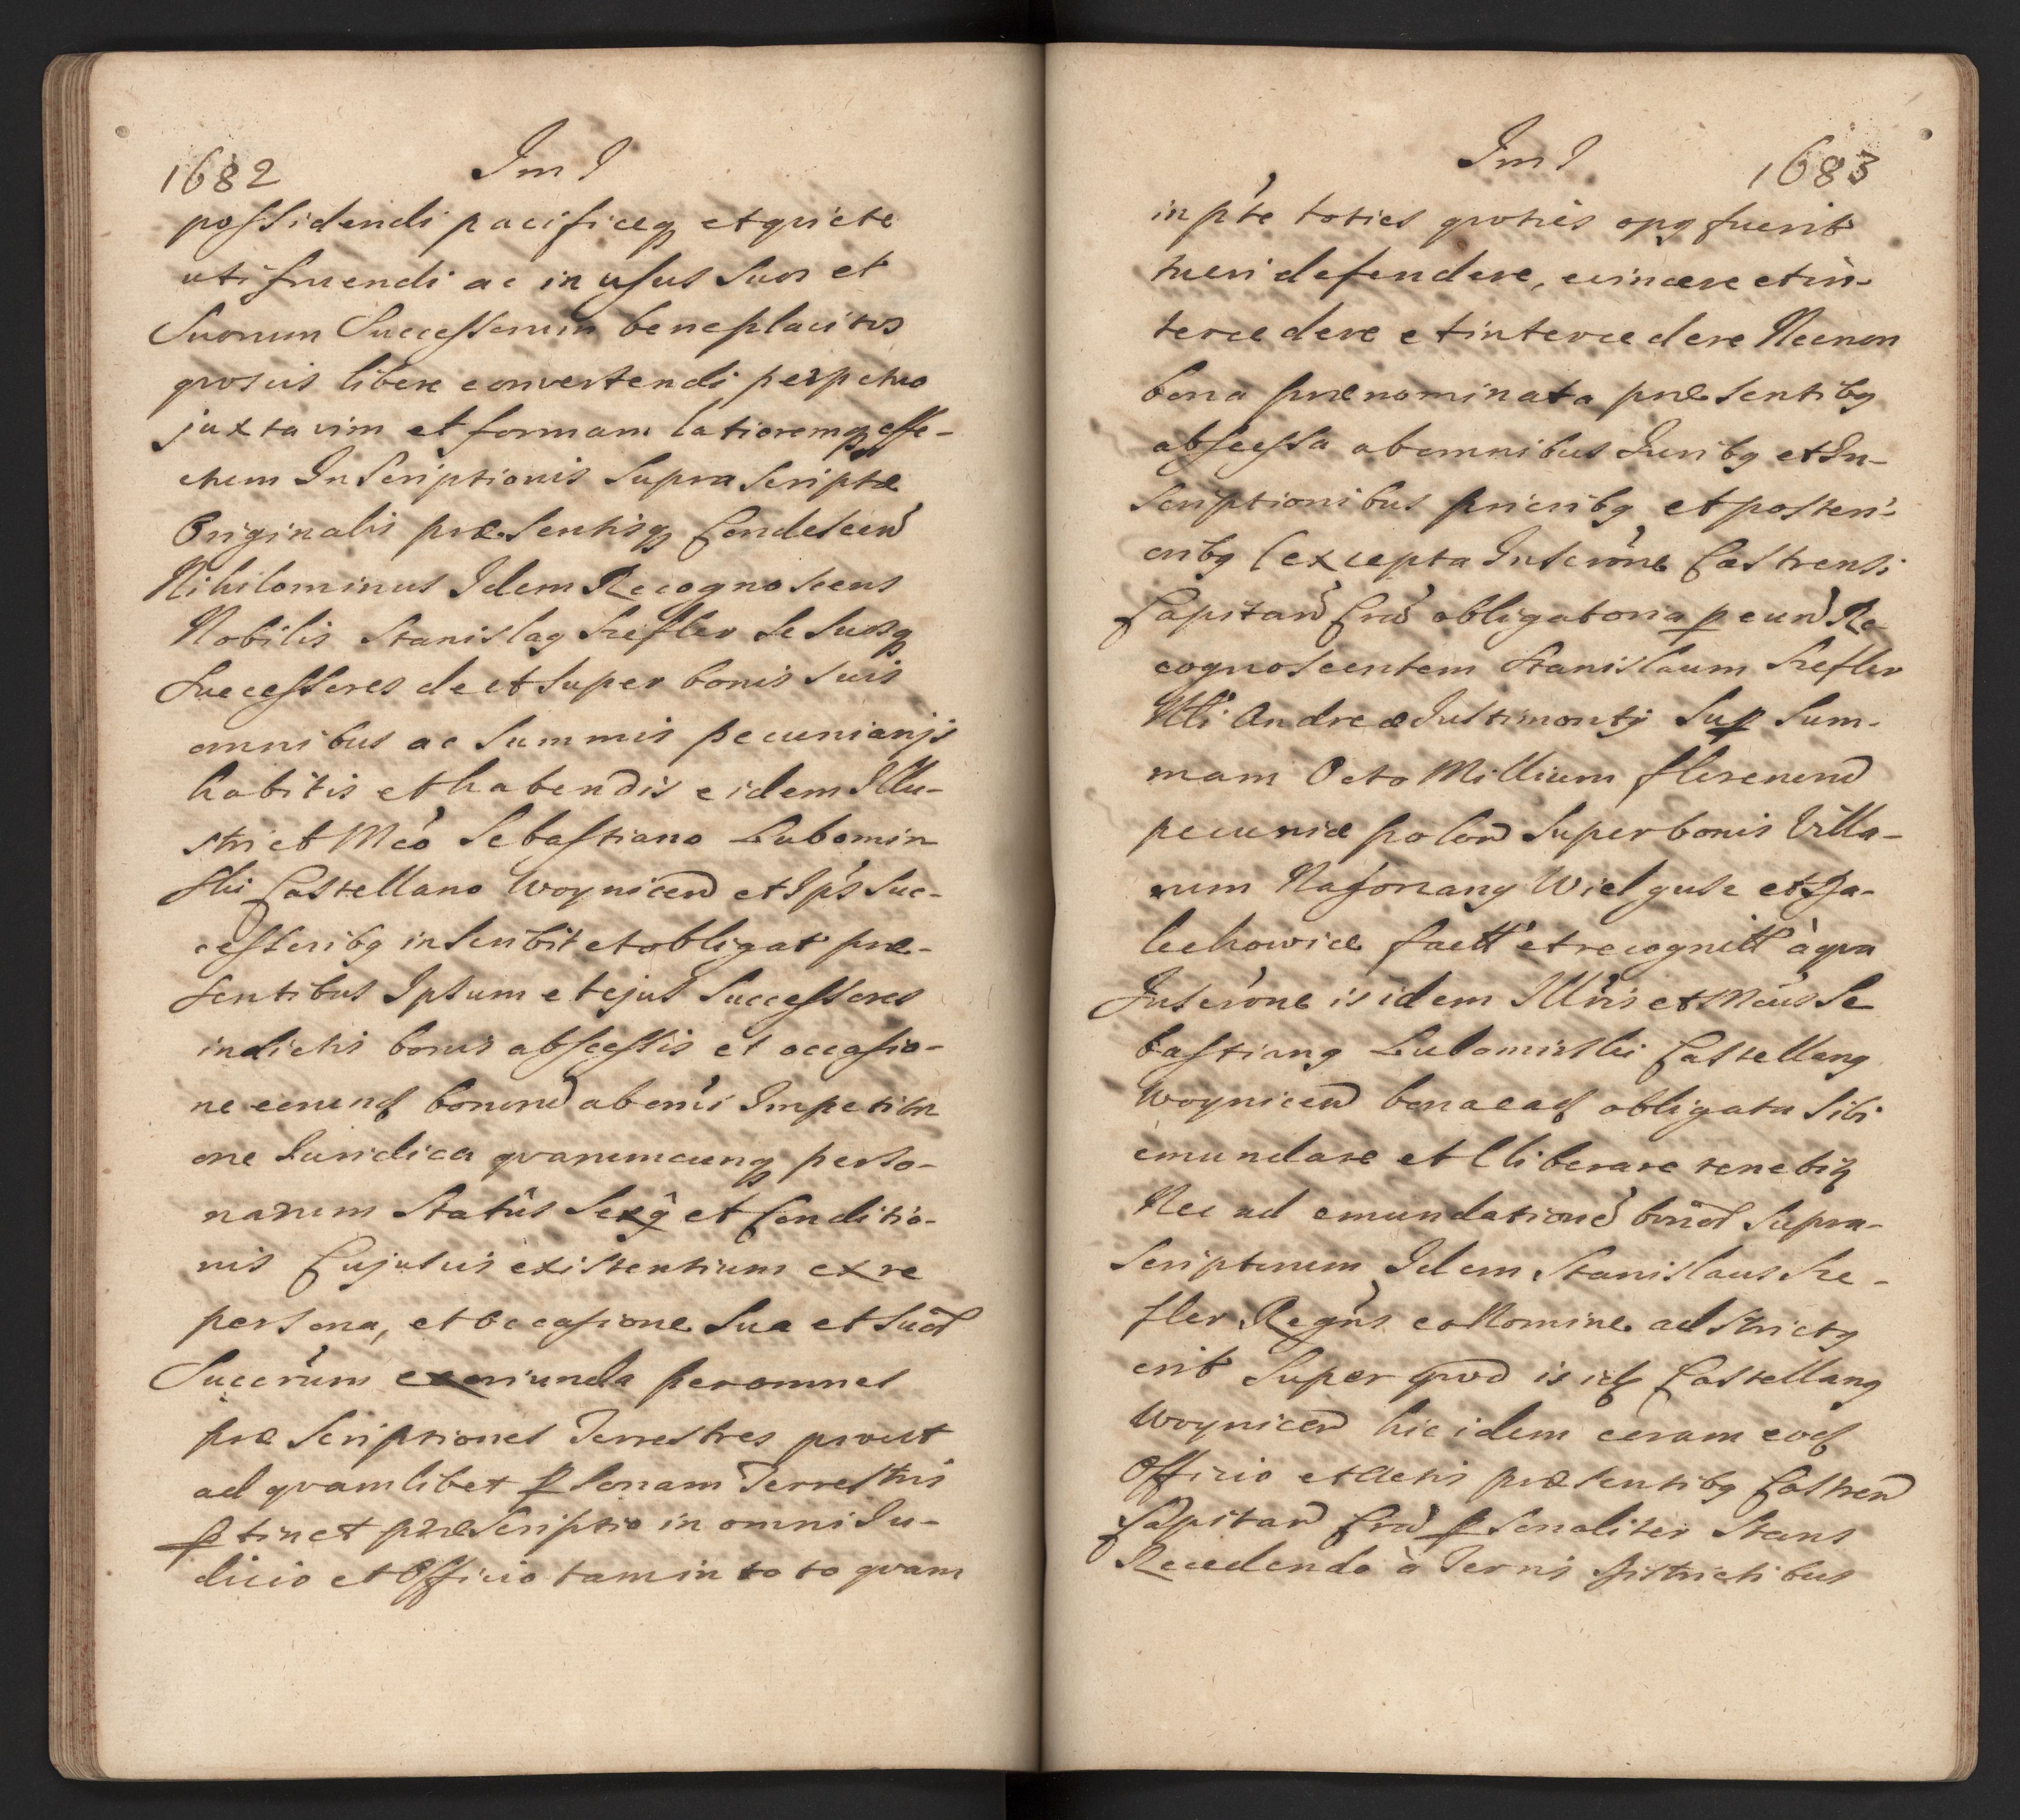 1682 Im I
possidendi pacificeq et quiete
uti fruendi ac in usus suos et
Suorum Successorum beneplacitos
quosvis libere convertendi perpetuo
juxta vim et formam latioremq effe-
ctum Inscriptionis supra scriptæ
Originalis præsentisq Condescen
Nihilominus Idem Recognoscens
Nobilis Stanislaq Szefler se suosq
Successores de et super bonis suis
omnibus ac summis pecuniarijs
habitis et habendis eidem Illu-
stri et Mco Sebastiano Lubomir
ski Castellano Woynicen et Ips Suc-
cessoribq inscribit et obligat præ-
sentibus Ipsum et ejus Successores
in dictis bonis abscessis et occasio-
ne eorund bonorum ab omi Impetitio
one Juridica quarumcunq perso-
narum Statûs Sexq et Conditio-
nis Cujusvis existentium ex re
persona, et occasione sua et suor
Succrum exoriunda per omnes
præscriptiones Terrestres prout
ad quamlibet psonam Terrestris
ptinet præscriptio in omni Ju-
dicio et Officio tam in toto quam
Im I 1683
in pte toties quoties opq fuerit
tueri defendere, evincere et in-
tercedere et intercedere Necnon
bona prænominata præsentibq
abscessa ab omnibus Juribq et In-
scriptionibus prioribq et posteri-
oribq (excepta Inscrone Castrensi
Capitan Crac obligatoria p eund Re
cognoscentem Stanislaum Szefler
Nli Andreæ Justimonty Sup Sum-
mam Octo Millium florenorum
pecuniæ polon super bonis Villa-
rum Nasonang Wielguse et Da-
lechowice factt et recognitt à qua
Inscrone is idem Illris et Mcus Se
bastianq Lubomirski Castellanq
Woynicen bona ead obligata sibi
emundare et lliberare tenebit
Nec ad emundatione bonor supra-
scriptorum Idem Stanislaus Sze-
fler Regns eo Nomine adstrictq
erit Super quod is id Castellanq
Woynicen hic idem coram eod
Officio et Actis præsentibq Castren
Capitan Crac psonaliter Stans
Recedendo à Terris Districtibus